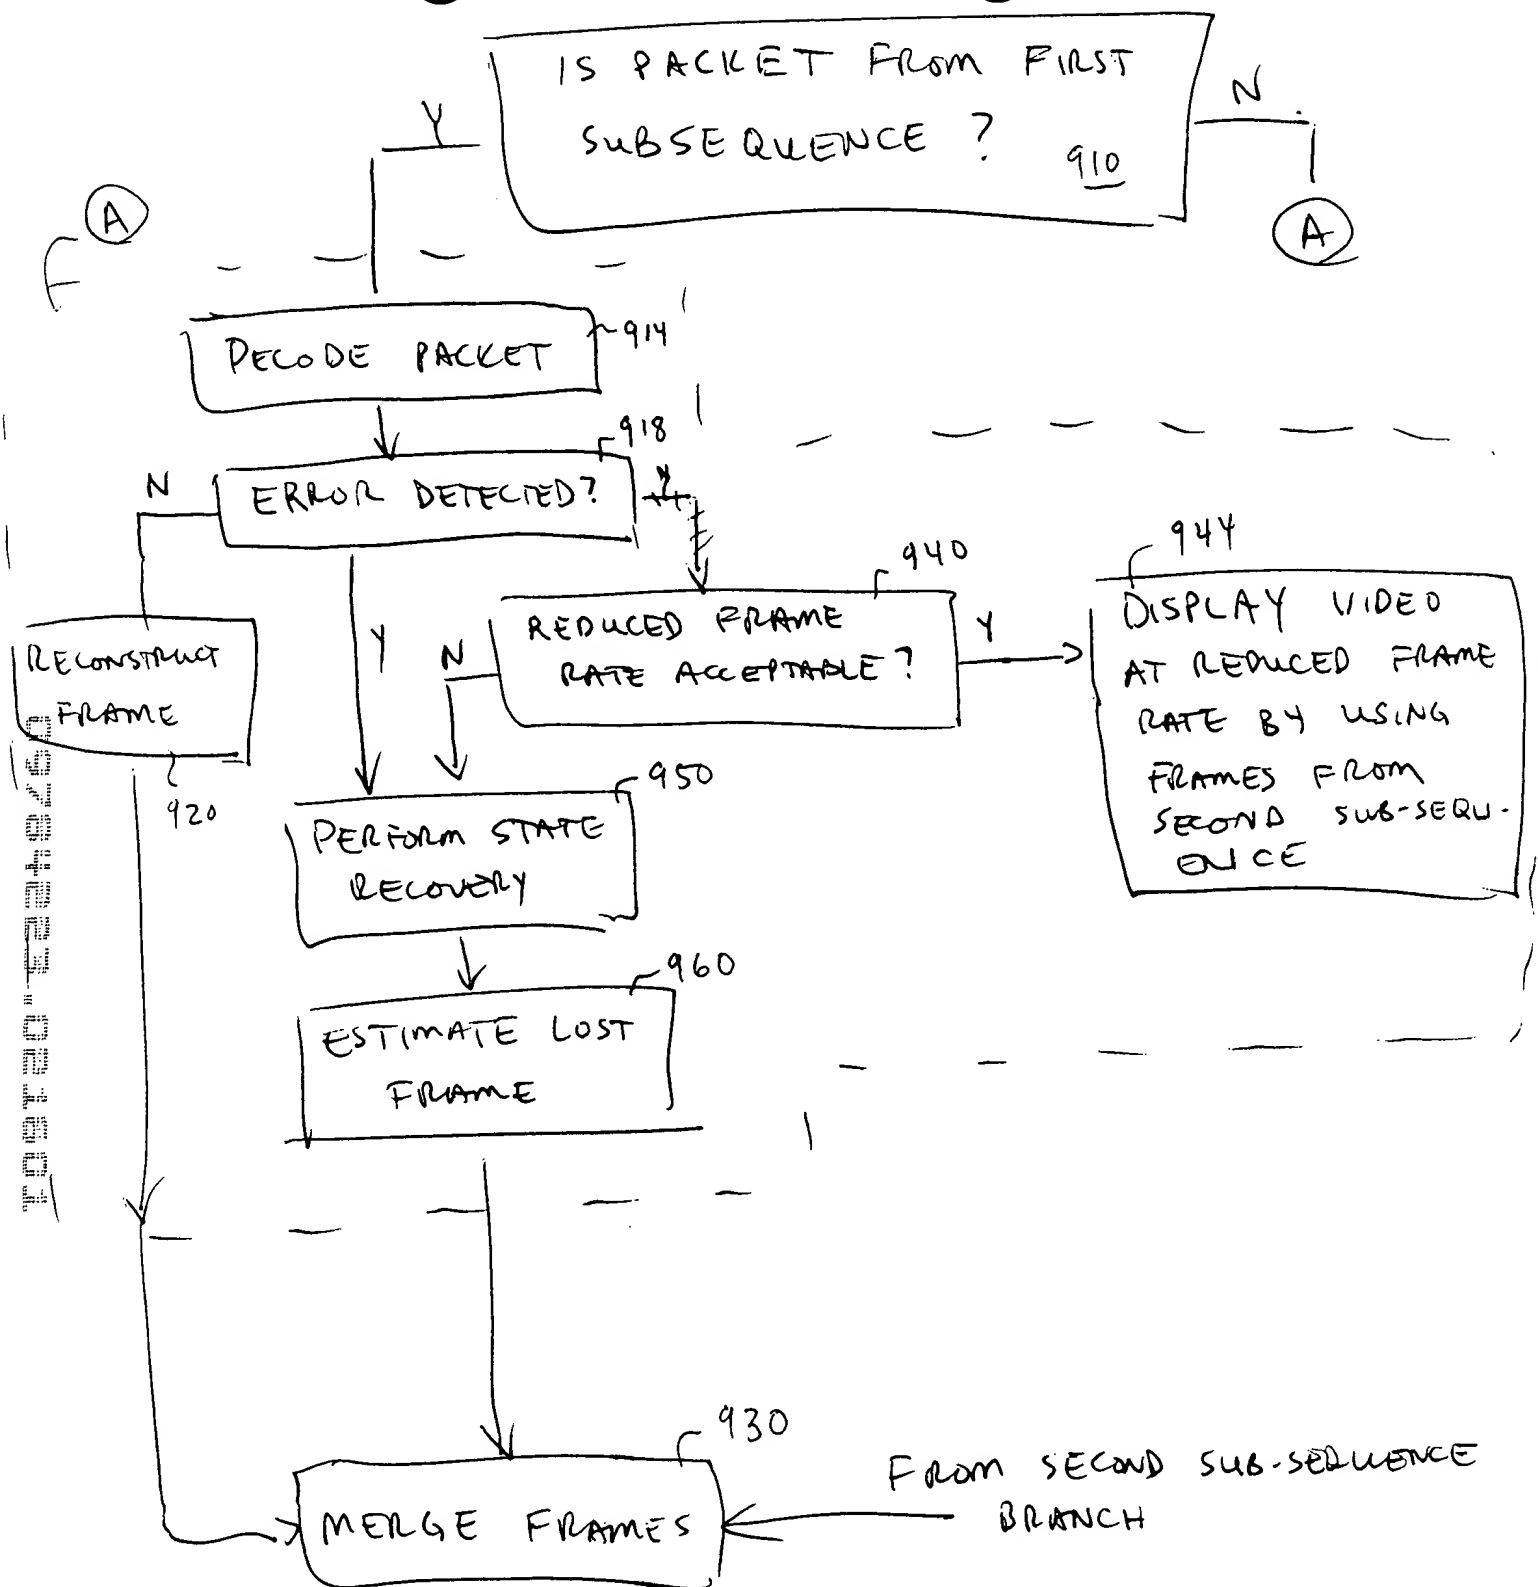 IS PACKET FROM FIRST
SUBSEQUENCE ?
910
Y
N
A
A
DECODE PACKET
914
918
ERROR DETECTED?
N
Y
940
944
REDUCED FRAME
RATE ACCEPTABLE?
Y
N
Y
DISPLAY VIDEO
AT REDUCED FRAME
RATE BY USING
FRAMES FROM
SECOND SUB-SEQU-
ENCE
RECONSTRUCT
FRAME
920
950
PERFORM STATE
RECOVERY
960
ESTIMATE LOST
FRAME
930
MERGE FRAMES
FROM SECOND SUB-SEQUENCE
BRANCH
09784223.021601